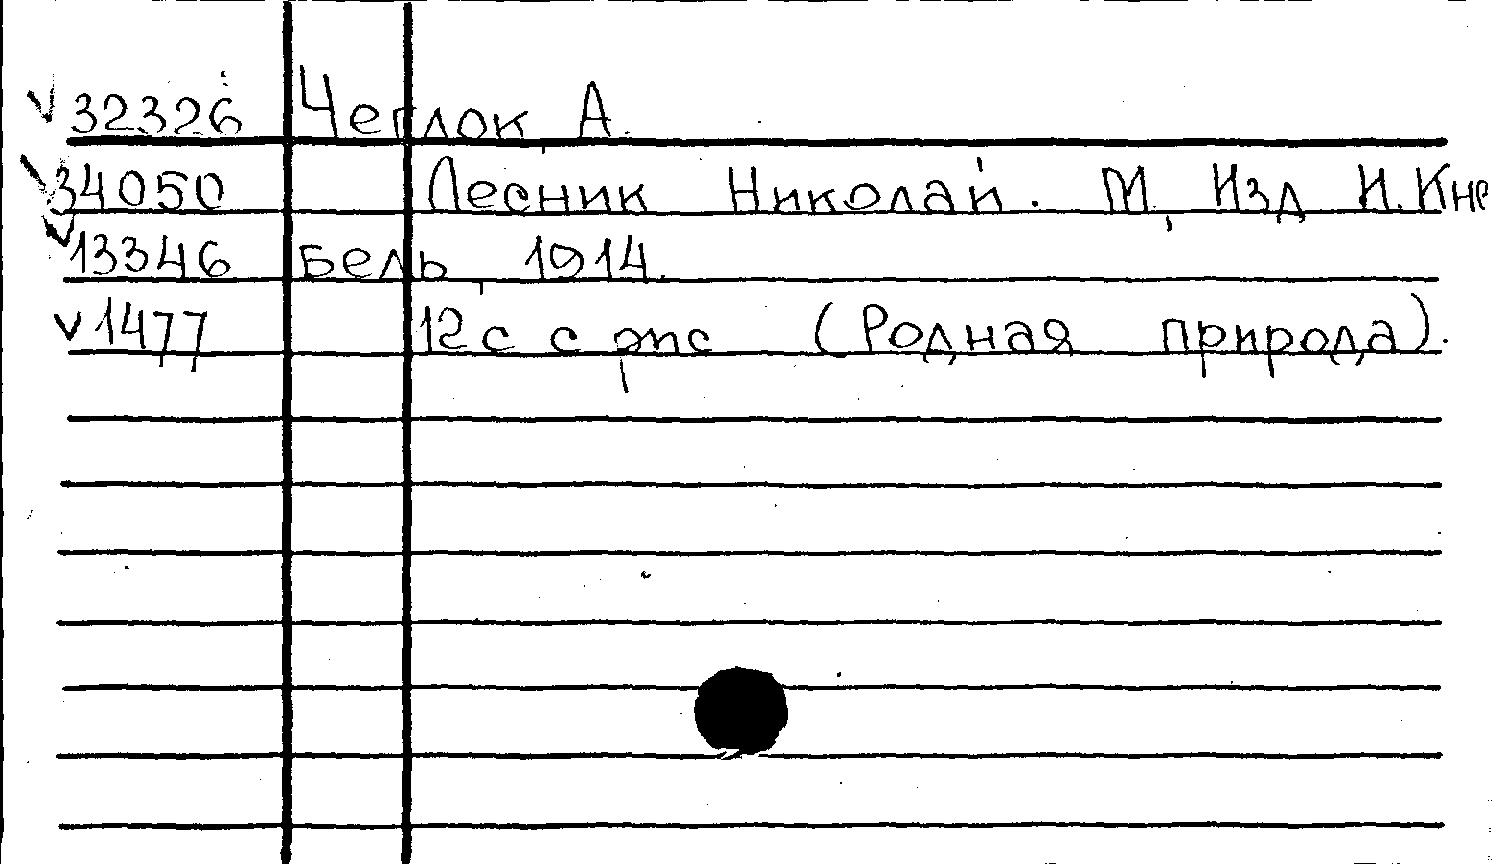 ✓32326 Чеглок, А.
✓34050 Лесник Николай. М, Изд И.Кне
✓13346 бель, 1914.
✓1477 12с с рис (Родная природа).